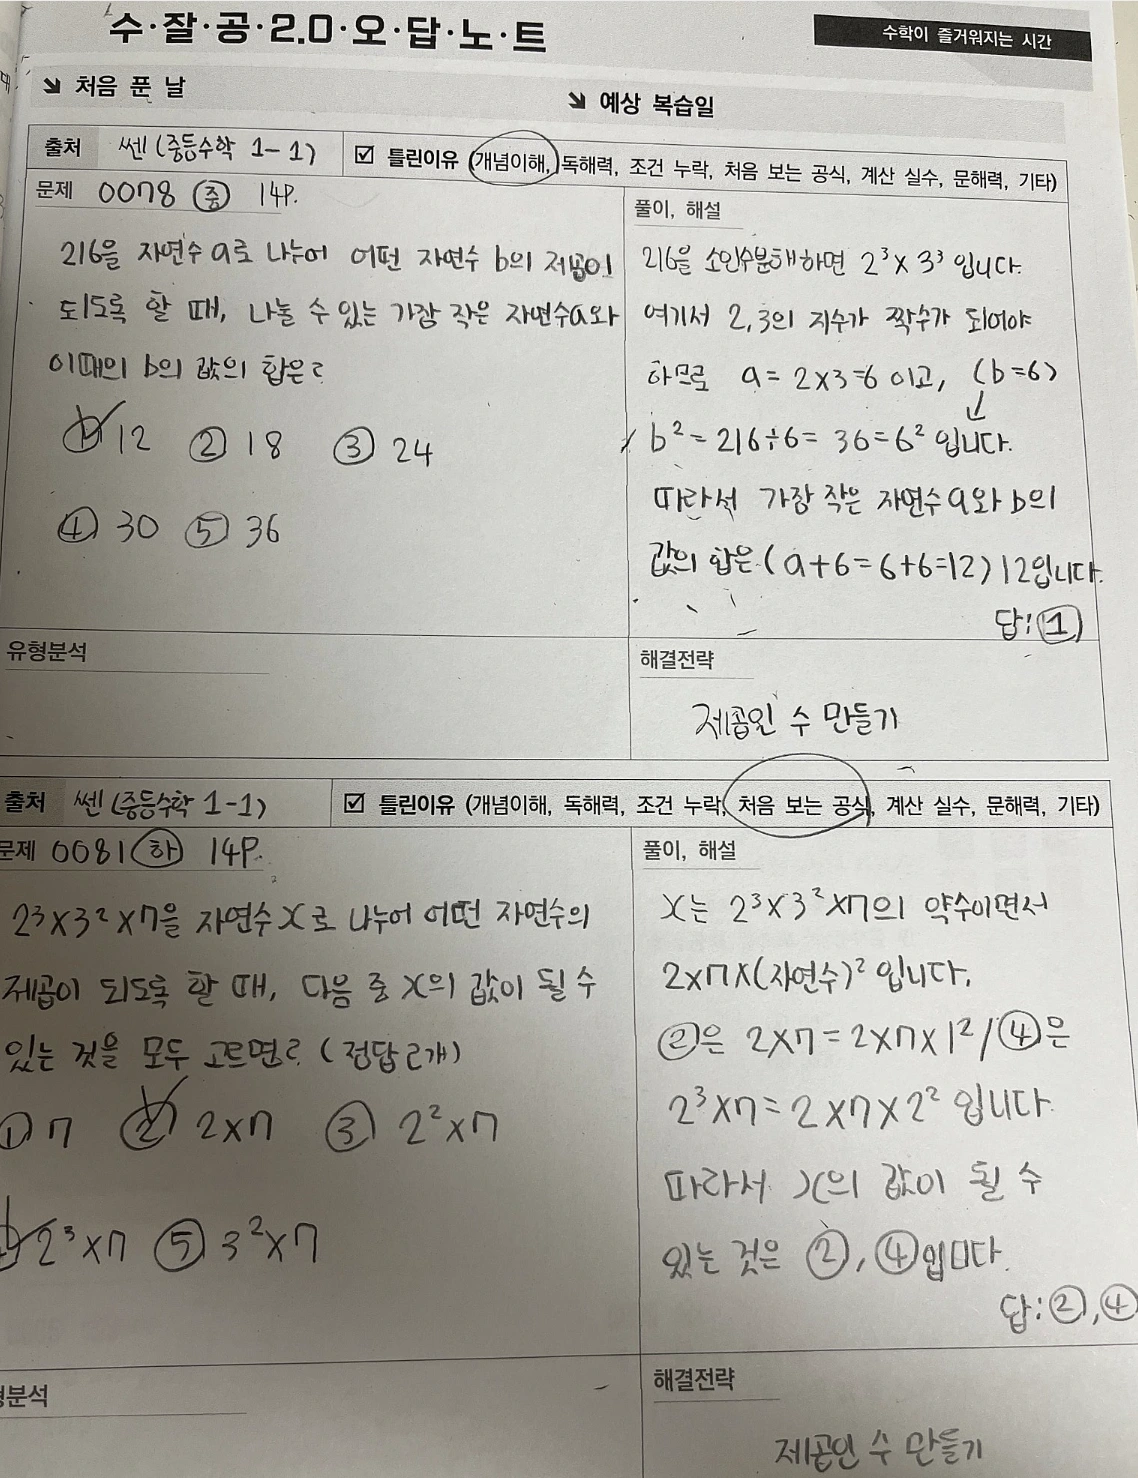 수·잘·공·2.0·오·답·노·트
수학이 즐거워지는 시간
↘ 처음 푼 날
↘ 예상 복습일
출처 쎈(중등수학 1-1)
☑ 틀린이유 (개념이해, 독해력, 조건 누락, 처음 보는 공식, 계산 실수, 문해력, 기타)
문제 0078 ㊥ 14P.
216을 자연수 a로 나누어 어떤 자연수 b의 제곱이
되도록 할 때, 나눌 수 있는 가장 작은 자연수 a와
이때의 b의 값의 합은?
① 12 ② 18 ③ 24
④ 30 ⑤ 36
풀이, 해설
216을 소인수분해하면 2³×3³ 입니다.
여기서 2,3의 지수가 짝수가 되어야
하므로 a=2×3=6 이고, (b=6)
↓
b²=216÷6=36=6² 입니다.
따라서 가장 작은 자연수 a와 b의
값의 합은 (a+6=6+6=12) 12입니다.
답: ①
유형분석
해결전략
제곱인 수 만들기
출처 쎈(중등수학 1-1)
☑ 틀린이유 (개념이해, 독해력, 조건 누락, 처음 보는 공식, 계산 실수, 문해력, 기타)
문제 0081 ㊦ 14P.
2³×3²×7을 자연수 x로 나누어 어떤 자연수의
제곱이 되도록 할 때, 다음 중 x의 값이 될 수
있는 것을 모두 고르면? (정답 2개)
① 7 ② 2×7 ③ 2²×7
④ 2³×7 ⑤ 3²×7
풀이, 해설
x는 2³×3²×7의 약수이면서
2×7×(자연수)² 입니다.
②은 2×7=2×7×1² / ④은
2³×7=2×7×2² 입니다.
따라서 x의 값이 될 수
있는 것은 ②, ④입니다.
답: ②, ④
형분석
해결전략
제곱인 수 만들기